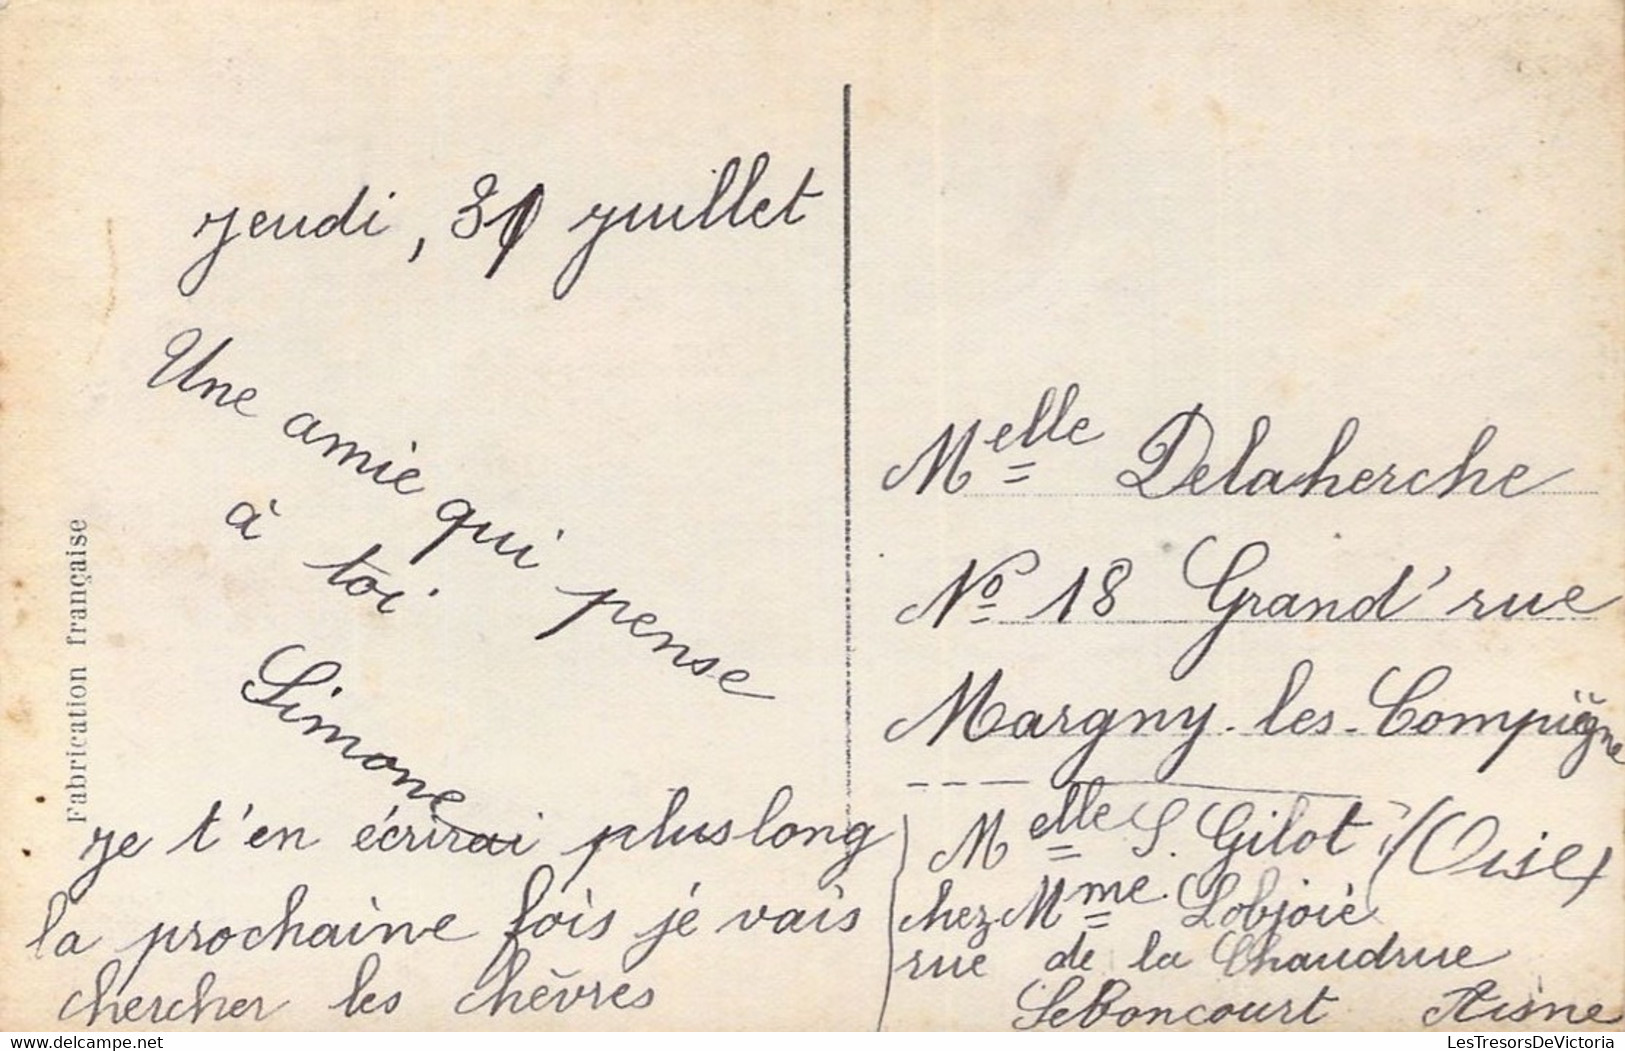 jeudi, 31 juillet
Une amie qui pense
à toi
Simone
je t'en écrirai plus long
la prochaine fois je vais
chercher les chèvres
Fabrication française
Melle Delaherche
No 18 Grand' rue
Margny-les-Compiègne
(Oise)
Melle S. Gilot
chez Mme Lobjoie
rue de la Chaudrue
Leboncourt Aisne
LesTresorsDeVictoria
delcampe.net